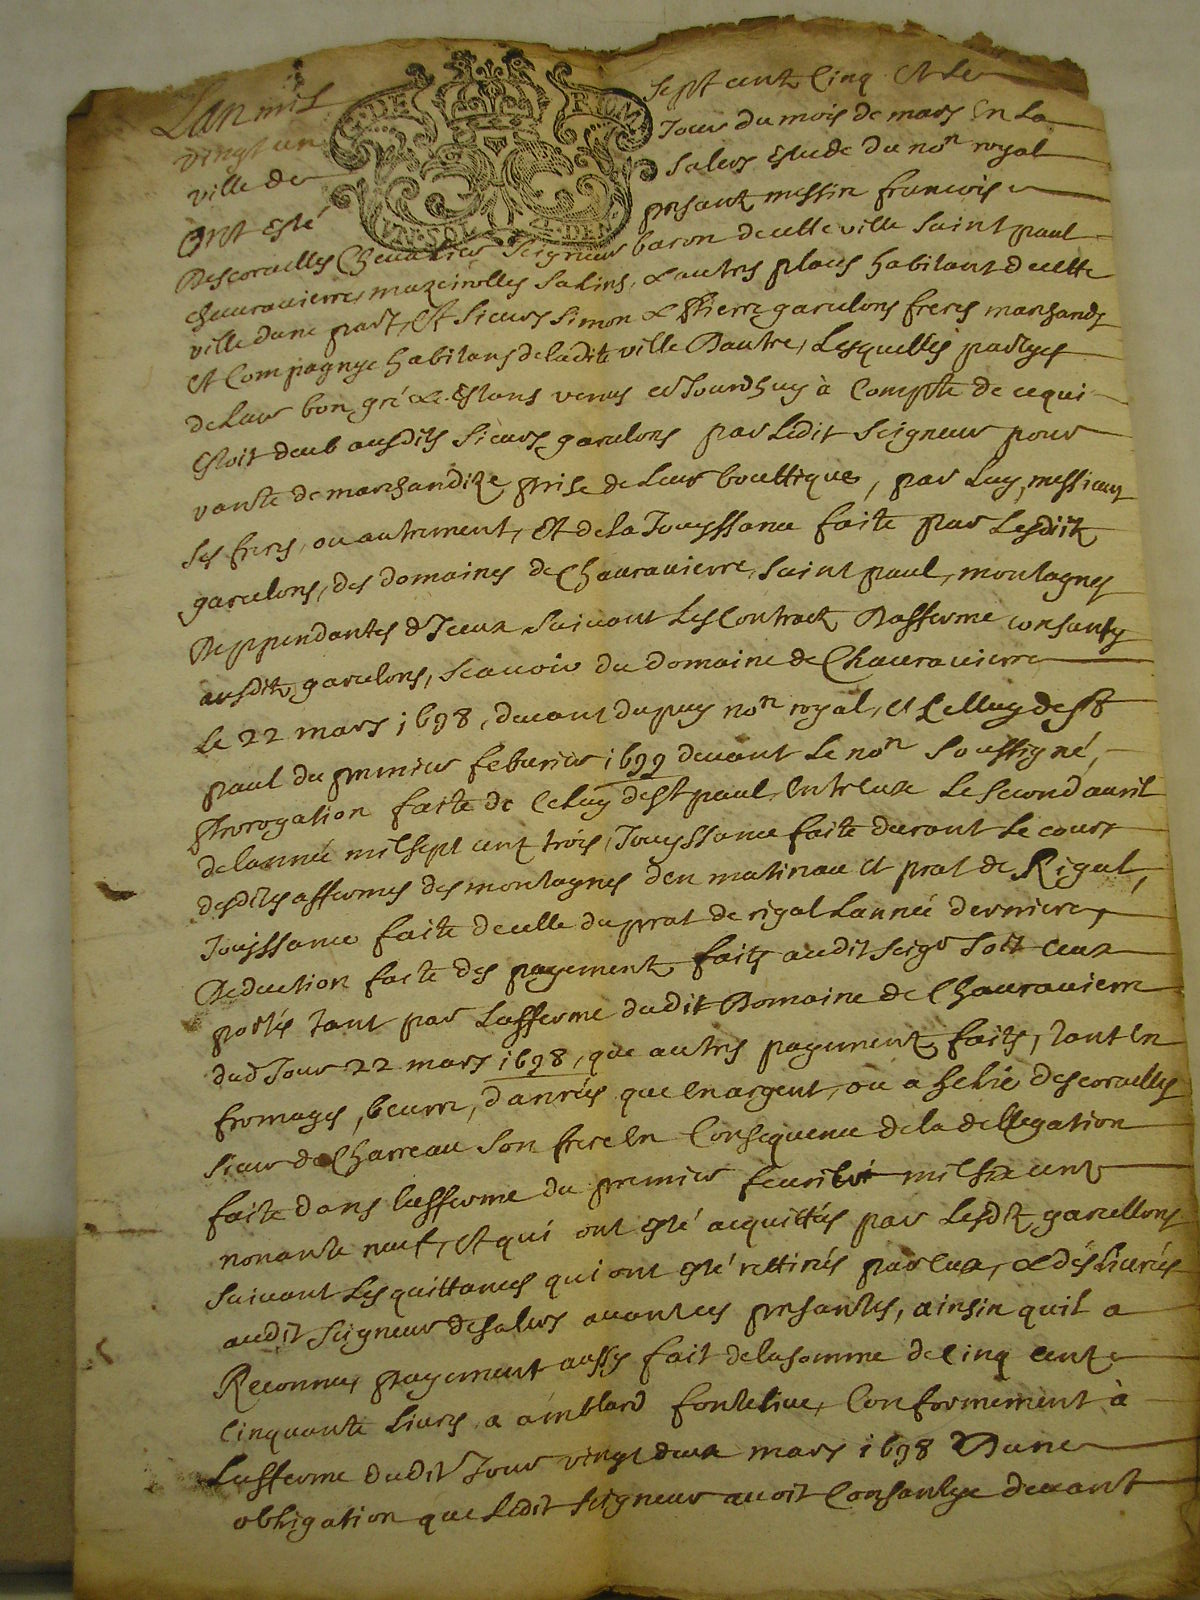 Lan mil sept cent Cinq et le
vingt un Jour du mois de mars En La
ville de Salers Estude du no.re royal
Ont esté presant messire francois
Descorailles Chevalier Seigneur baron de cette ville Saint paul
chauravierre, mazeirolles Salins, & autres places habitant de cette
ville dune part, Et Sieurs Simon & Pierre garculons freres marchands
Et Compagnye habitans de ladite ville Dautre, Lesquelles partyes
de Leur bon gré & Estans venus ce Jourdhuy à Compte de cequi
Estoit deub ausdits Sieurs garculons par Ledit Seigneur pour
vante de marchandize prise de Leur bouttique, par Luy, messieurs
ses freres, ou autrement, Et de la Jouyssance faite par Lesdits
garculons, des domaines de Chauravierre, Saint paul, montagnes
Deppendantes d'Iceux Suivant Les Contracts Dafferme consantys
ausdits garculons, Scavoir du domaine de Chauravierre
Le 22 mars 1698, devant dupuy no.re royal, et Celluy de St
paul du premier febvrier 1699 devant Le no.re Soussigné,
Prorogation faite de Celuy de St paul, Entreux Le Second avril
de lannée mil sept cent trois, Jouyssance faite durant Le cours
desdites affermes des montagnes den matinau et prat de Rigal,
Jouyssance faite de celle du prat de rigal Lannée derniere,
Deduction faite des payements faits audit Seigr Soit Ceux
portés tant par Lafferme dudit Domaine de Chauravierre
dud Jour 22 mars 1698, que autres payements faits, tant En
fromages, beurre, danrées que En argent, ou a helie descorailles
Sieur de Charreau Son frere En Consequence de la dellegation
faite dans lafferme du premier fevrier mil six cent
nonante neuf, Et qui ont esté acquittés par Lesdts garcullons
Suivant Les quittances qui ont esté rettirées par Eux, & déslivrées
audit Seigneur de Salers avant ces presantes, ainsin quil a
Reconnu, payement aussy fait de la somme de Cinq Cents
Cinquante Livres a amblard fontelive, Conformement à
Lafferme dudit Jour vingt deux mars 1698 Dune
obligation que Ledit Seigneur avoit Consantye devant
DE RIOM
UN SOL 4 DEN